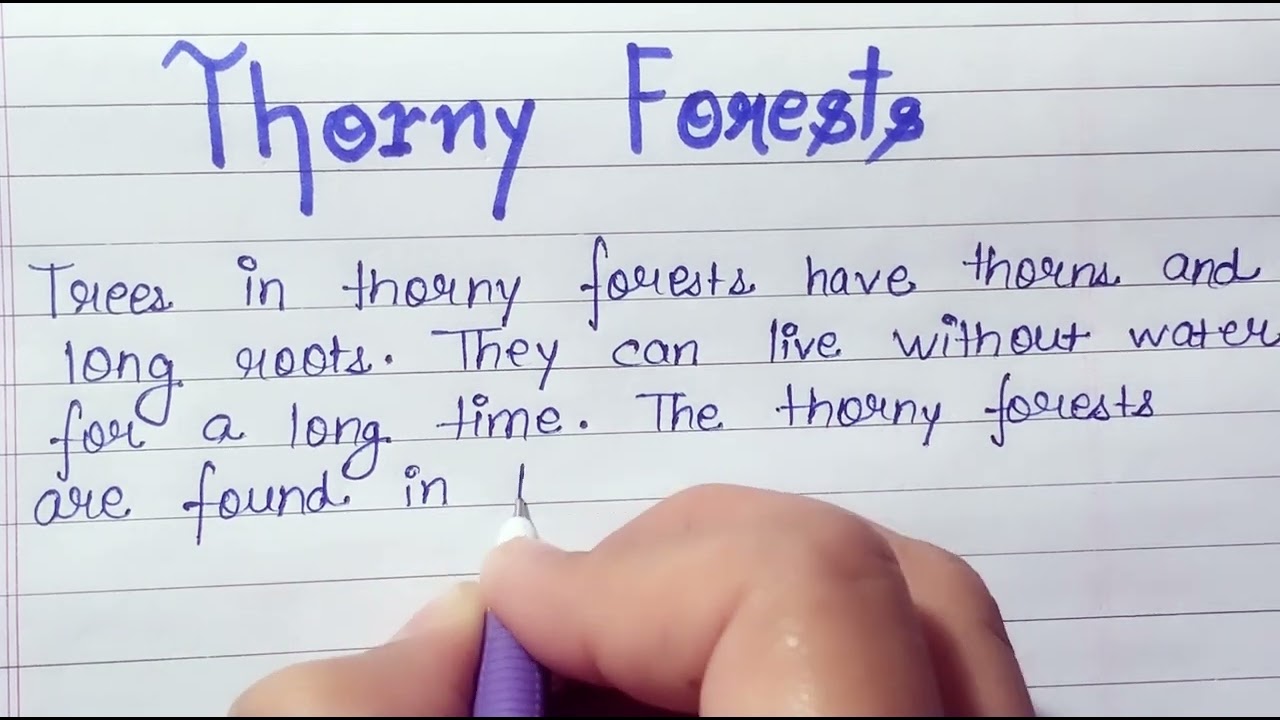 Thorny Forests
Trees in thorny forests have thorns and
long roots. They can live without water
for a long time. The thorny forests
are found in